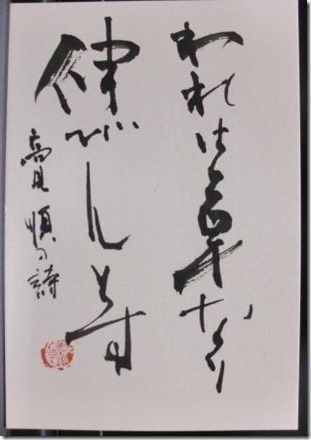 われは草なり
伸びんとす
高見順の詩